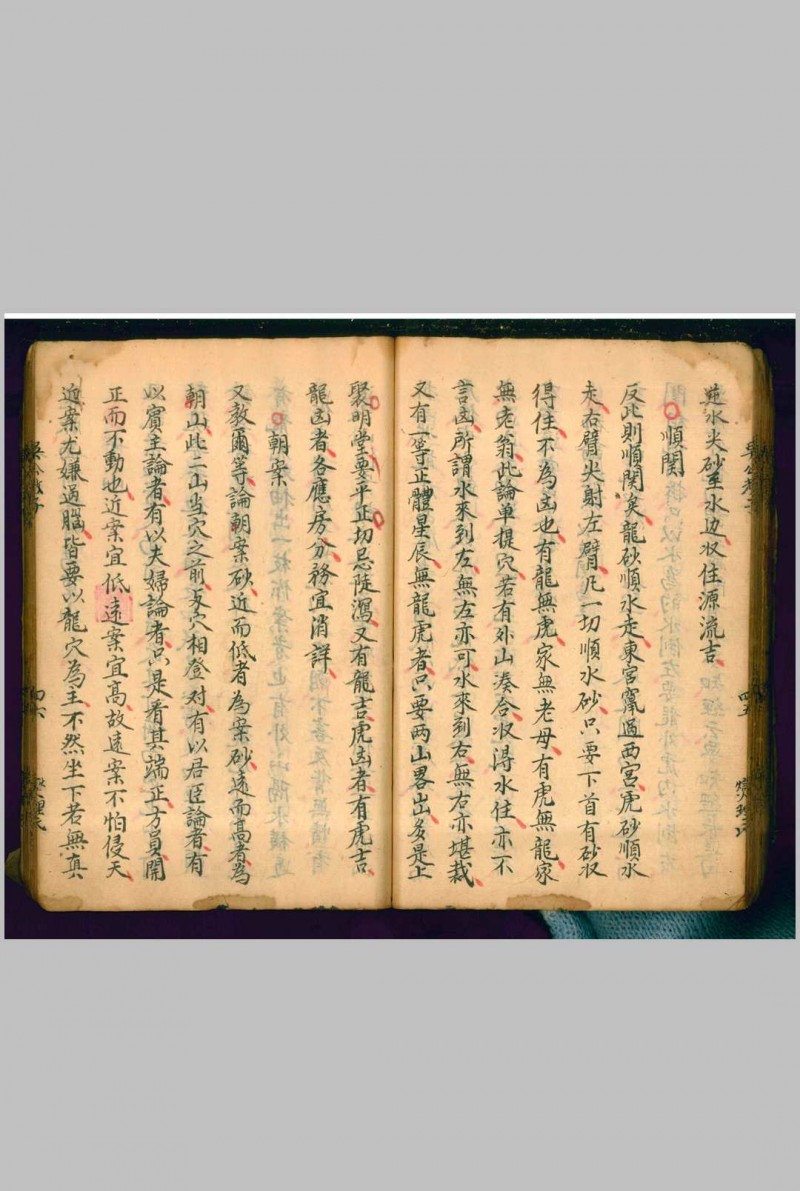 逆水尖砂至水边收住源流吉
順関
反此則順関矣龍砂順水走東宫竄過西宫虎砂順水
走右臂尖射左臂凡一切順水砂只要下首有砂収
得住不為凶也有龍無虎家無老母有虎無龍家
無老翁此論单提穴若有外山湊合収得水住亦不
言凶所謂水來到左無左亦可水來到右無右亦堪裁
又有一等正體星辰無龍虎者只要两山畧出多是上
聚明堂要平正切忌陡瀉又有龍吉虎凶者有虎吉
龍凶者各應房分務宜消詳
朝案
又教爾等論朝案砂近而低者為案砂遠而高者為
朝山此二山当穴之前與穴相登对有以君臣論者有
以賓主論者有以夫婦論者只是看其端正方員開
正而不動也近案宜低遠案宜高故遠案不怕侵天
近案尤嫌過腦皆要以龍穴為主不然坐下若無真
四五
四六